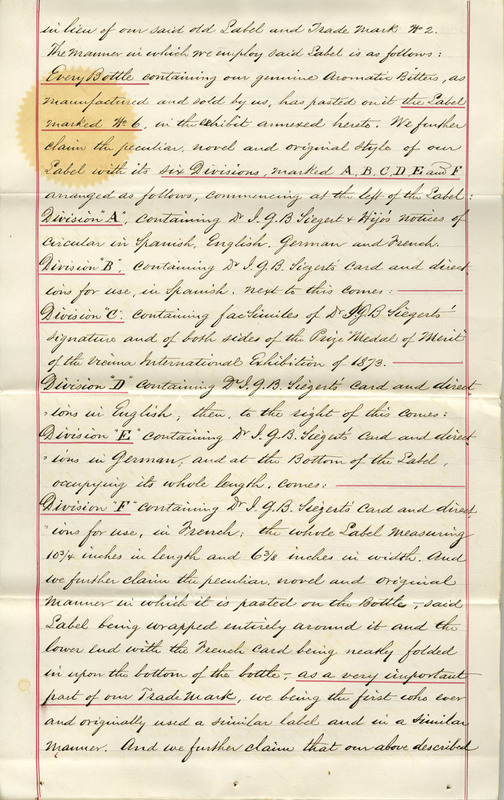 in lieu of our said old Label and Trade Mark No 2.
The Manner in which we employ said Label is as follows:
Every Bottle containing our genuine Aromatic Bitters, as
manufactured and sold by us, has pasted on it the Label
marked No 6, in the Exhibit annexed hereto. We further
claim the peculiar, novel and original style of our
Label with its six Divisions, marked A, B, C, D, E and F
arranged as follows, commencing at the left of the Label:
Division "A", containing Dr J. G. B Siegert & Hijos notices of
circular in Spanish, English, German and French.
Division "B", containing Dr J. G. B. Siegerts card and direct
ions for use, in Spanish. next to this comes:
Division "C". containing facsimiles of Dr J G. B Siegerts'
signature and of both sides of the Prize "Medal of Merit"
of the Vienna International Exhibition of 1873.
Division "D" containing Dr J. G. B. Siegerts card and direct
ions in English, then, to the right of this comes:
Division "E" containing Dr J. G. B. Siegerts card and direct
ions in German, and at the Bottom of the Label,
occupying its whole length, comes:
Division "F" containing Dr J. G. B. Siegerts card and direct
ions for use, in French; the whole Label measuring
10 3/4 inches in length and 6 3/8 inches in width. And
we further claim the peculiar, novel and original
manner in which it is pasted on the Bottle, said
Label being wrapped entirely around it and the
lower end with the French card being neatly folded
in upon the bottom of the bottle, as a very important
part of our Trade Mark, we being the first who ever
and originally used a similar label and in a similar
manner. And we further claim that our above described